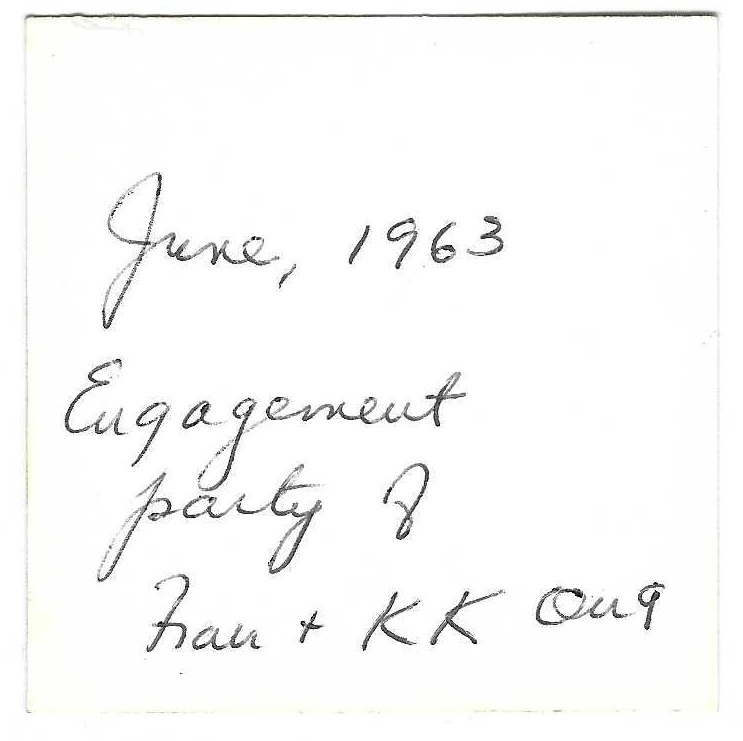 June, 1963
Engagement
party of
Fran + KK Ong